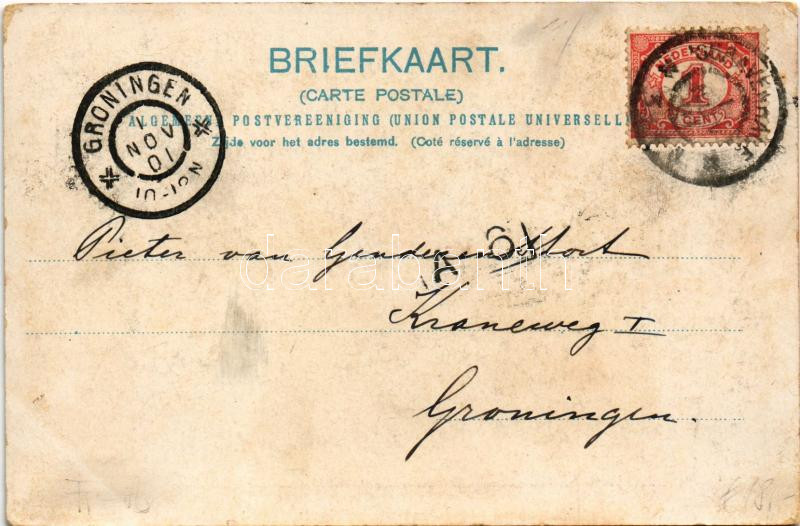 BRIEFKAART.
(CARTE POSTALE)
ALGEMEENE POSTVEREENIGING (UNION POSTALE UNIVERSELLE)
Zijde voor het adres bestemd. (Coté réservé à l'adresse)
GRONINGEN
NOV
01
NEDERLAND
1
CENT
Pieter van Genderen Stort
Kraneweg I
Groningen.
darabanth